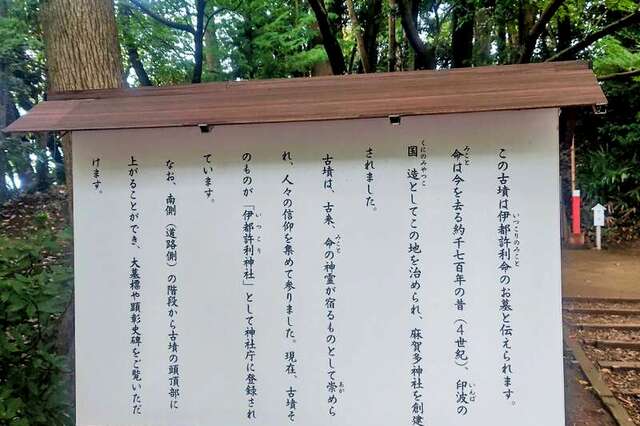 この古墳は伊都許利命のお墓と伝えられます。
いつこりのみこと
命は今を去る約千七百年の昔（４世紀）、印波の
みこと
いんば
国造としてこの地を治められ、麻賀多神社を創建
くにのみやつこ
されました。
古墳は、古来、命の神霊が宿るものとして崇めら
みこと
あが
れ、人々の信仰を集めて参りました。現在、古墳そ
のものが「伊都許利神社」として神社庁に登録され
いつこり
ています。
なお、南側（道路側）の階段から古墳の頭頂部に
上がることができ、大墓標や顕彰史碑をご覧いただ
けます。